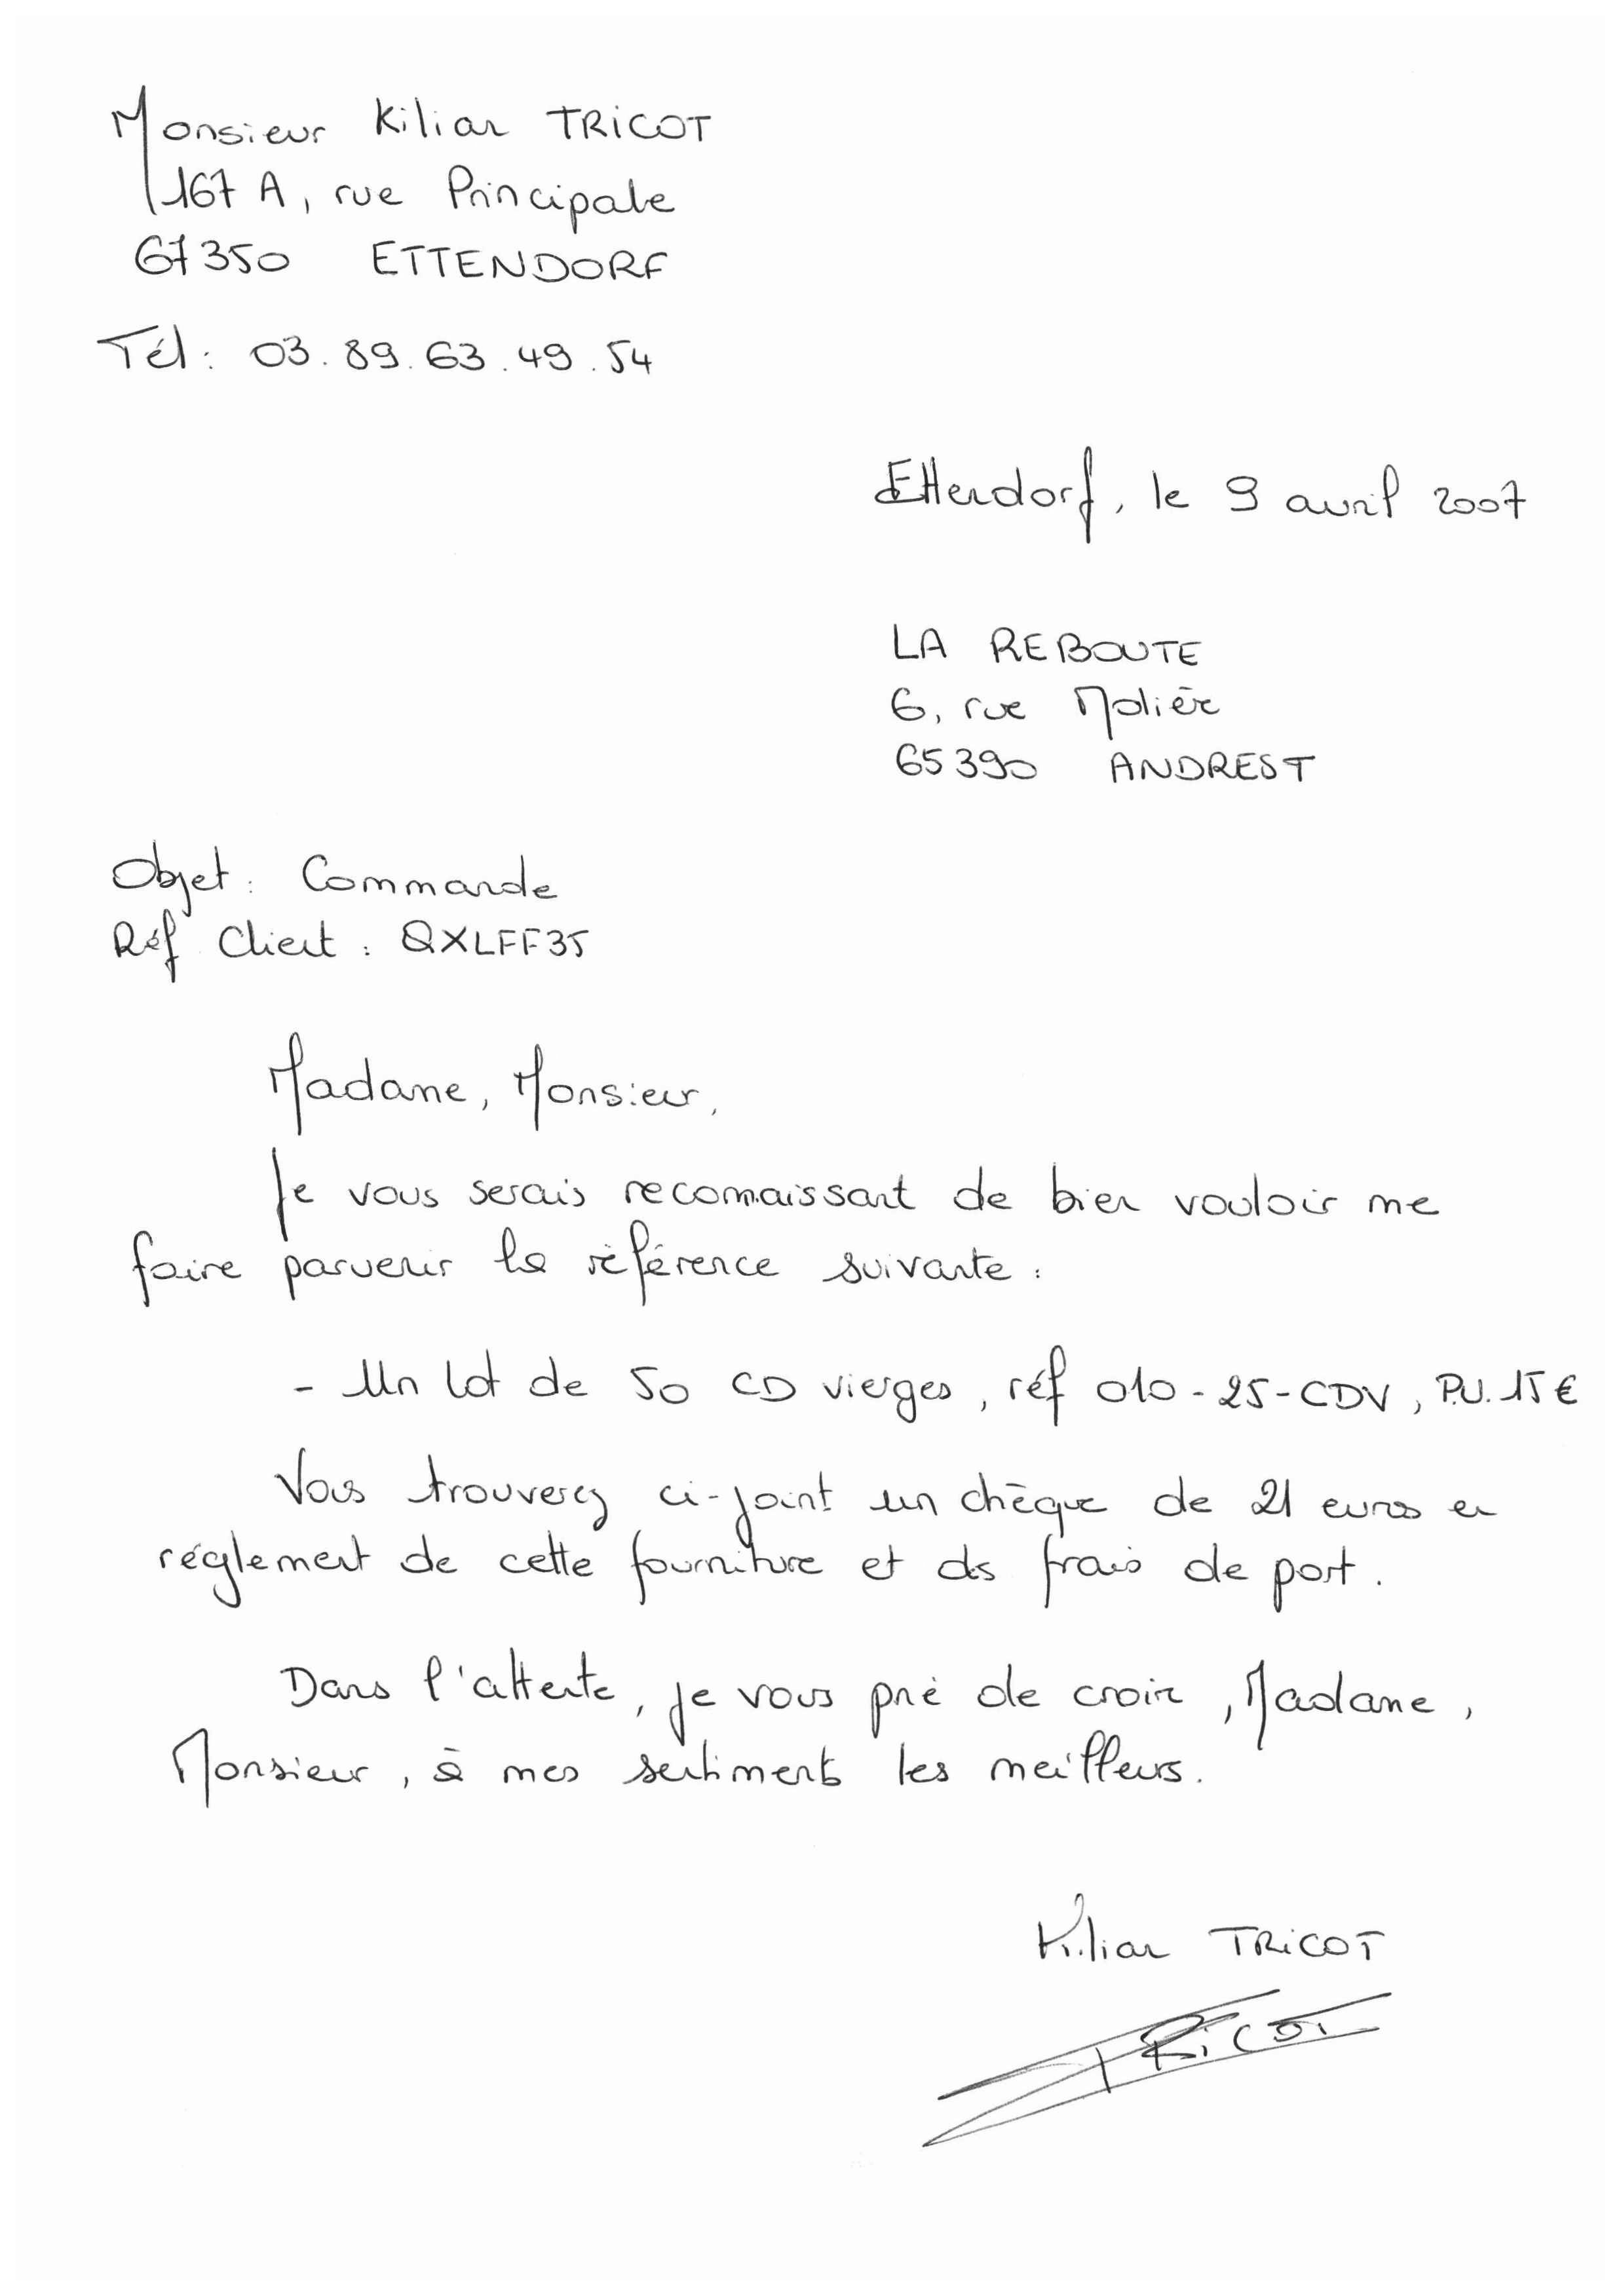 Monsieur Kilian TRICOT
167 A, rue Principale
67350 ETTENDORF
Tél : 03.89.63.49.54
Ettendorf, le 9 avril 2007
LA REBOUTE
6, rue Molière
65390 ANDREST
Objet : Commande
Réf Client : QXLFF35
Madame, Monsieur,
Je vous serais reconnaissant de bien vouloir me
faire parvenir la référence suivante :
- Un lot de 50 CD vierges, réf 010-25-CDV, P.U. 15€
Vous trouverez ci-joint un chèque de 21 euros en
réglement de cette fourniture et des frais de port.
Dans l'attente, je vous prie de croire, Madame,
Monsieur, à mes sentiments les meilleurs.
Kilian TRICOT
TRICOT